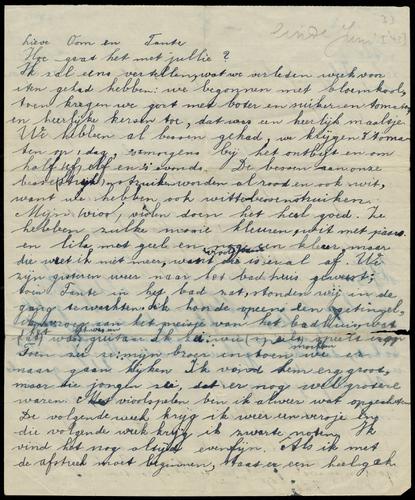 33
einde Juni [43]
Lieve Oom en Tante
Hoe gaat het met jullie?
Ik zal eens vertellen, wat we verleden week voor
eten gehad hebben: we begonnen met bloemkool,
toen kregen we gort met boter en suiker en tomaten
en heerlijke kersen toe, dat was een heerlijk maaltje.
We hebben al bessen gehad, we krijgen 7 toma
ten op 1 dag, 's morgens bij het ontbijt en om
half elf en 's avonds. De bessen aan onze
bessenstruiken worden al rood en ook wit,
want we hebben ook witte bessenstruiken.
Mijn viooltjes doen het heel goed. Ze
hebben zulke mooie kleuren, wit met paars
en lila, met geel en nog een kleur, maar
die weet ik niet meer, want die is er al af. We
zijn gisteren weer naar het badhuis geweest;
toen Tante in het bad zat, stonden wij in de
gang te wachten. Ik hoorde opeens een
van het meisje van het badhuis
Toen zei mijn broer en toen we er
maar gaan kijken. Ik vond hem erg groot,
maar die jongen zei, dat er nog veel grotere
waren. Met vioolspelen ben ik alweer wat opgeschoten
De volgende week krijg ik weer een versje en
die volgende week krijg ik zwarte noten. Ik
vind het nog altijd even fijn. Als ik met
de afstreek moet beginnen, staat er een heel gek